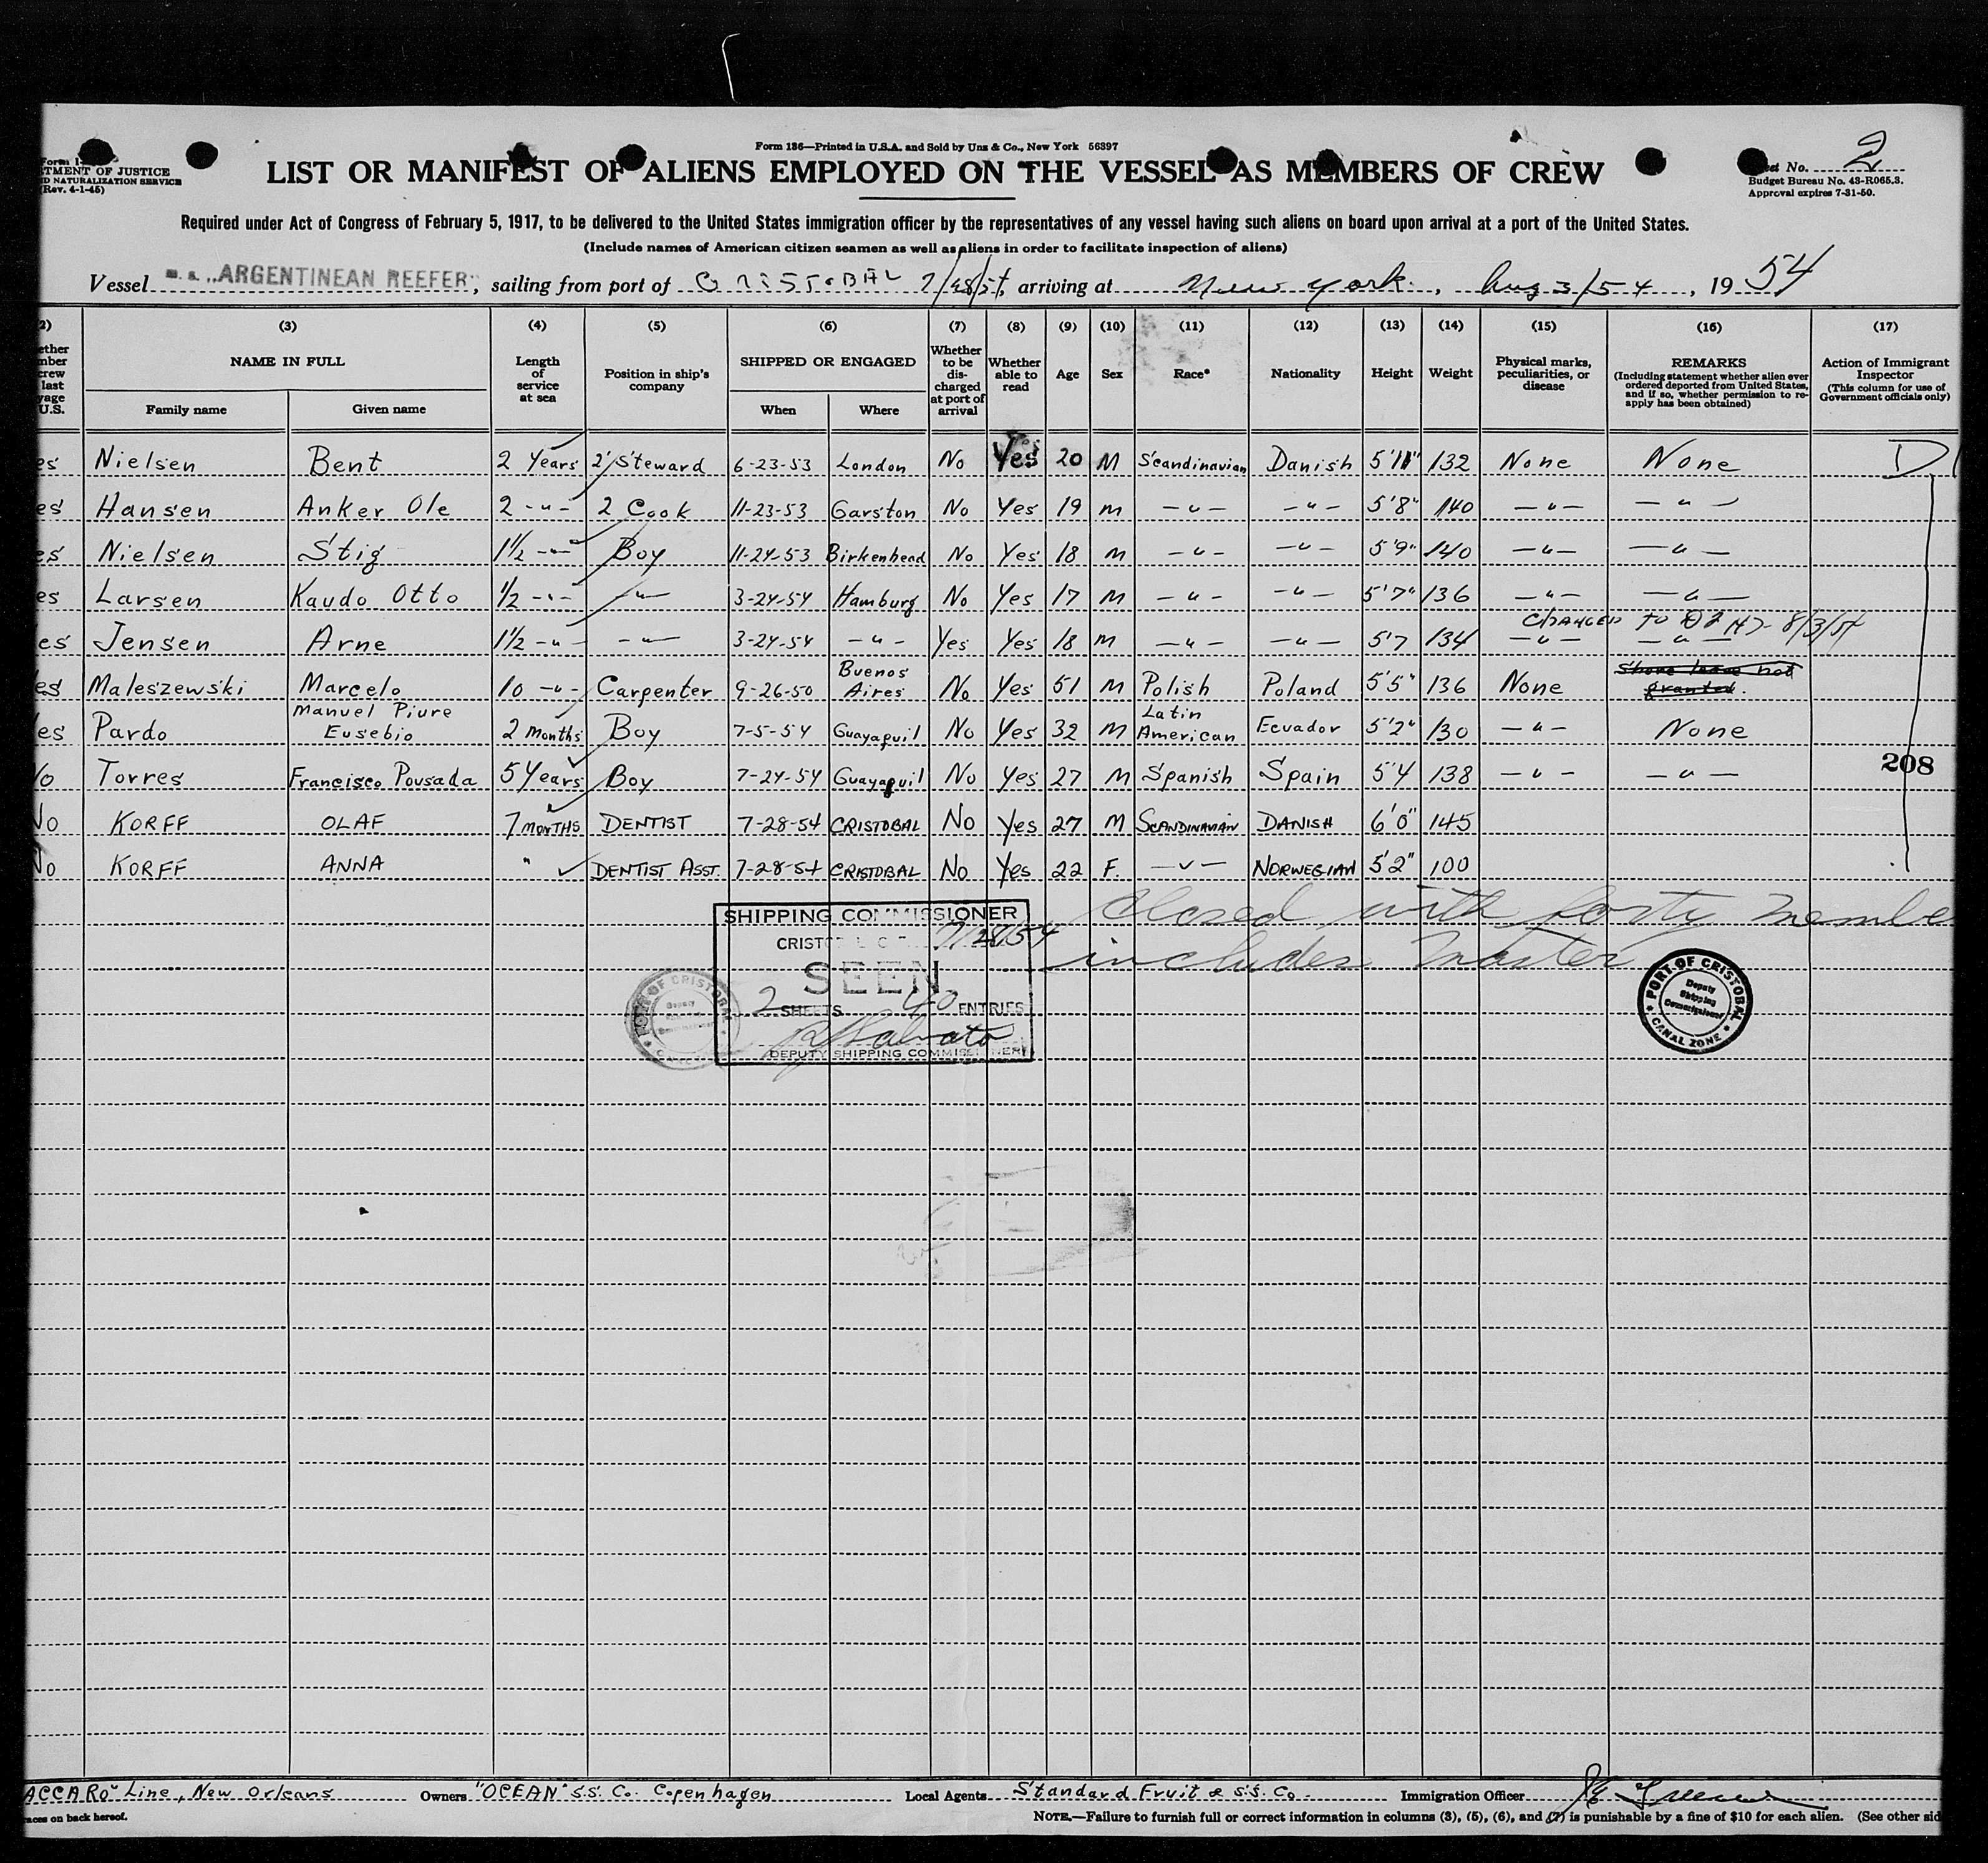 Form 136—Printed in U.S.A. and Sold by Unz & Co., New York 56397
Form 1-
TMENT OF JUSTICE
D NATURALIZATION SERVICE
(Rev. 4-1-45)
LIST OR MANIFEST OF ALIENS EMPLOYED ON THE VESSEL AS MEMBERS OF CREW
et No. 2
Budget Bureau No. 43-R065.3.
Approval expires 7-31-50.
Required under Act of Congress of February 5, 1917, to be delivered to the United States immigration officer by the representatives of any vessel having such aliens on board upon arrival at a port of the United States.
(Include names of American citizen seamen as well as aliens in order to facilitate inspection of aliens)
Vessel m. s. „ARGENTINEAN REEFER", sailing from port of CRISTOBAL 7/28/54, arriving at New York, Aug 3/54, 1954
2) (3) (4) (5) (6) (7) (8) (9) (10) (11) (12) (13) (14) (15) (16) (17)
ether mber crew last yage U.S. NAME IN FULL Family name Given name Length of service at sea Position in ship's company SHIPPED OR ENGAGED When Where Whether to be discharged at port of arrival Whether able to read Age Sex Race* Nationality Height Weight Physical marks, peculiarities, or disease REMARKS (Including statement whether alien ever ordered deported from United States, and if so, whether permission to re-apply has been obtained) Action of Immigrant Inspector (This column for use of Government officials only)
es Nielsen Bent 2 Years 2' Steward 6-23-53 London No Yes 20 M Scandinavian Danish 5'11" 132 None None D1
es Hansen Anker Ole 2 -"- 2 Cook 11-23-53 Garston No Yes 19 M -"- -"- 5'8" 140 -"- -"-
es Nielsen Stig 1½ -"- Boy 11-24-53 Birkenhead No Yes 18 M -"- -"- 5'9" 140 -"- -"-
es Larsen Kaudo Otto ½ -"- -"- 3-24-54 Hamburg No Yes 17 M -"- -"- 5'7" 136 -"- -"-
CHANGED TO D2 8/3/54
es Jensen Arne 1½ -"- -"- 3-24-54 -"- Yes Yes 18 M -"- -"- 5'7 134 -"- -"-
es Maleszewski Marcelo 10 -"- Carpenter 9-26-50 Buenos Aires No Yes 51 M Polish Poland 5'5" 136 None Shore leave not granted.
es Pardo Manuel Piure Eusebio 2 Months Boy 7-5-54 Guayaquil No Yes 32 M Latin American Ecuador 5'2" 130 -"- None
o Torres Francisco Pousada 5 Years Boy 7-24-54 Guayaquil No Yes 27 M Spanish Spain 5'4 138 -"- -"- 208
No KORFF OLAF 7 MONTHS DENTIST 7-28-54 CRISTOBAL No Yes 27 M SCANDINAVIAN DANISH 6'0" 145
No KORFF ANNA " DENTIST ASST. 7-28-54 CRISTOBAL No Yes 22 F. -"- NORWEGIAN 5'2" 100
Closed with forty membe
includes Master
SHIPPING COMMISSIONER
CRISTOBAL C. Z. 7/28/54
SEEN
2 SHEETS 40 ENTRIES
DEPUTY SHIPPING COMMISSIONER
PORT OF CRISTOBAL
Deputy
PORT OF CRISTOBAL
Deputy
Shipping
Commissioner
CANAL ZONE
ACCARO" Line, New Orleans Owners "OCEAN" S.S. Co. Copenhagen Local Agents Standard Fruit & S.S. Co. Immigration Officer
aces on back hereof. NOTE.—Failure to furnish full or correct information in columns (3), (5), (6), and (7) is punishable by a fine of $10 for each alien. (See other sid